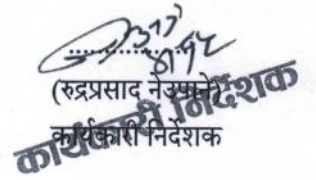 (रुद्रप्रसाद नेउपाने)
कार्यकारी निर्देशक
कार्यकारी निर्देशक